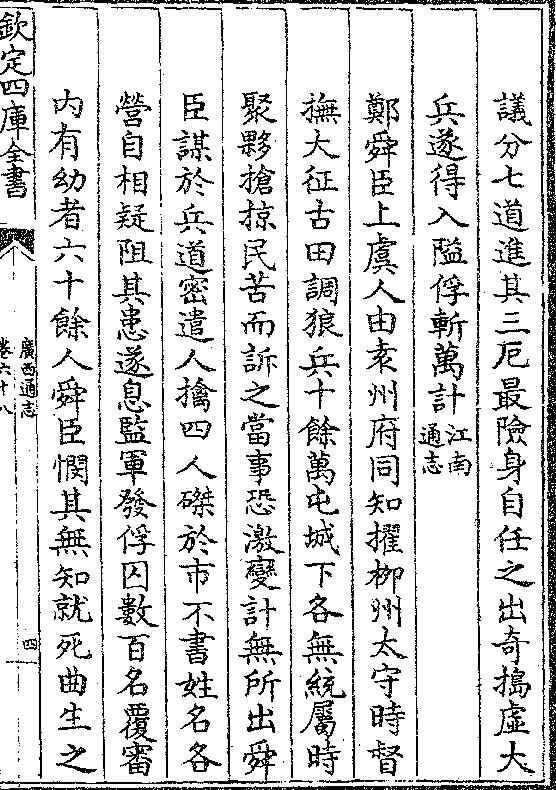 議分七道進其三厄最險身自任之出奇搗虛大
兵遂得入隘俘斬萬計江南
通志
鄭舜臣上虞人由袁州府同知擢柳州太守時督
撫大征古田調狼兵十餘萬屯城下各無統屬時
聚夥搶掠民苦而訴之當事恐激變計無所出舜
臣謀於兵道密遣人擒四人磔於市不書姓名各
營自相疑阻其患遂息監軍發俘囚數百名覆審
内有幼者六十餘人舜臣憫其無知就死曲生之
欽定四庫全書
廣西通志
卷六十八
四